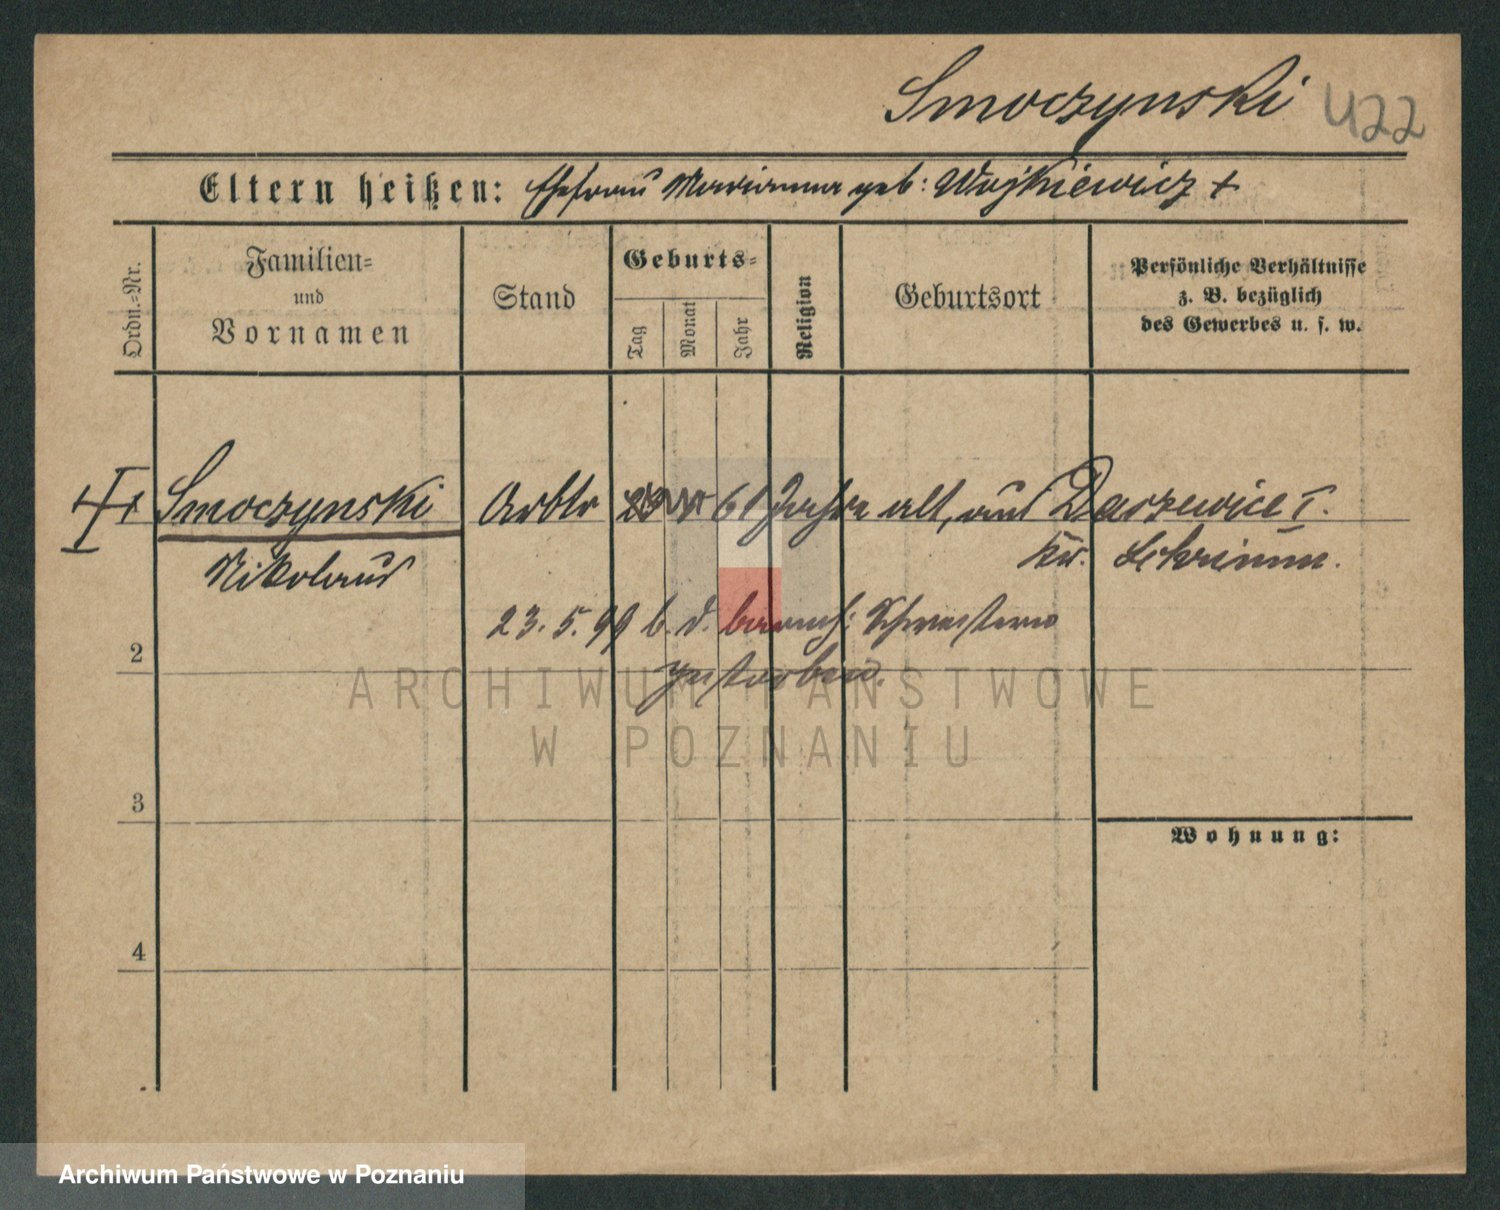 Smoczynski 422
Eltern heißen: Ehefrau Marianna geb: Wojkiewicz +
Ordn.-Nr.
Familien-
und
Vornamen
Stand
Geburts-
Tag
Monat
Jahr
Religion
Geburtsort
Persönliche Verhältnisse
z. B. bezüglich
des Gewerbes u. s. w.
Smoczynski Arbtr 61 Jahre alt, aus Darzewice I.
Nikolaus Kr. Schrimm.
23. 5. 99 b. d. barmh: Schwestern
2
gestorben.
3
4
Wohnung:
ARCHIWUM PAŃSTWOWE
W POZNANIU
Archiwum Państwowe w Poznaniu